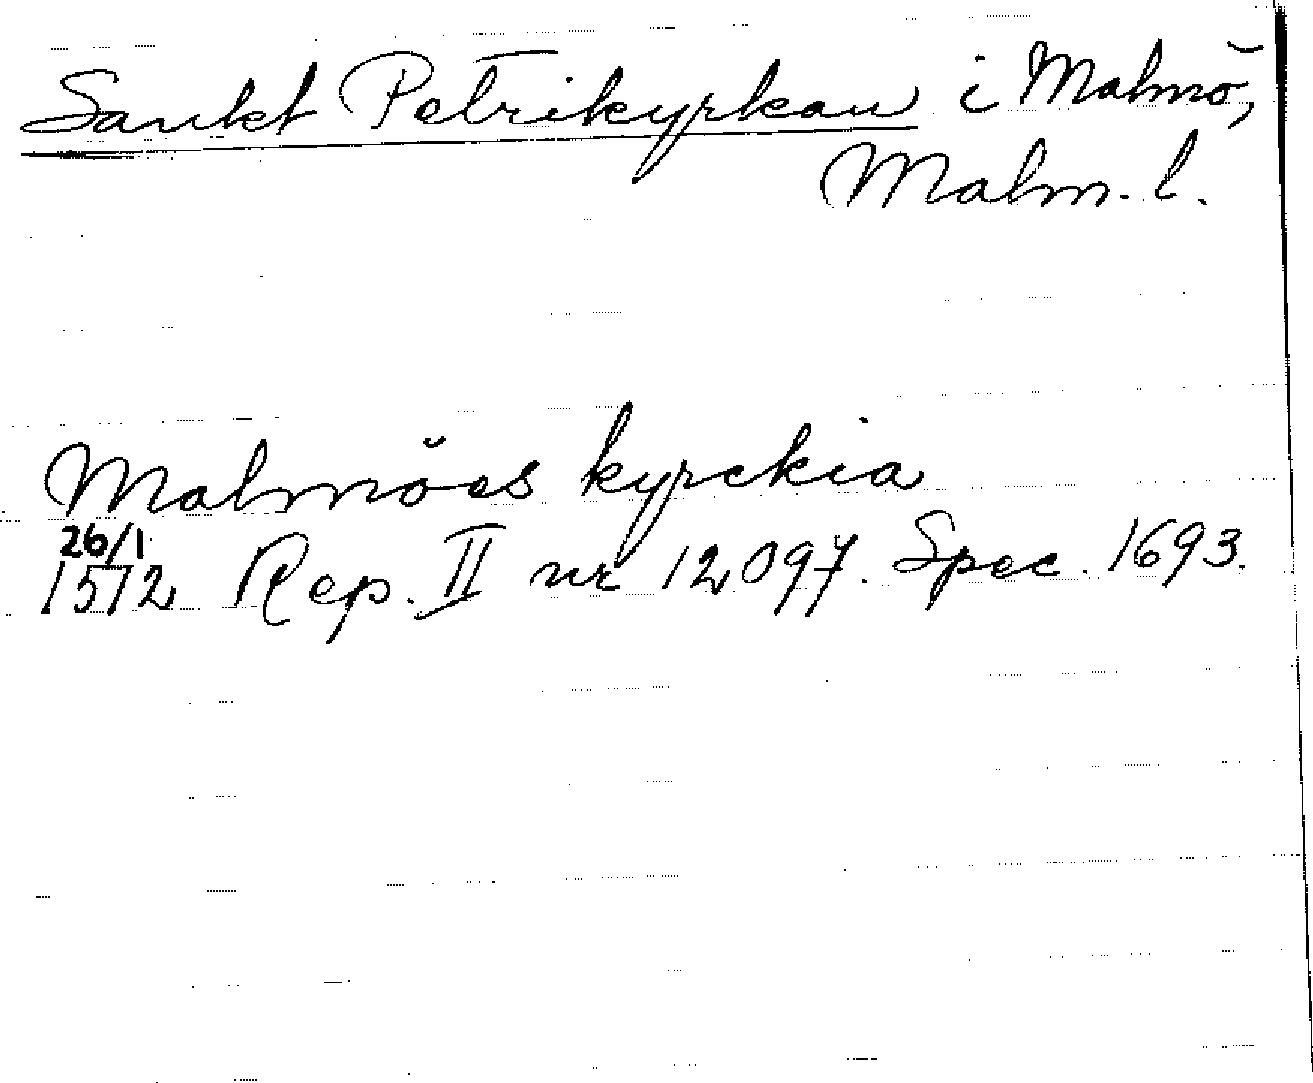 Sankt Petrikyrkan i Malmö,
Malm. l.
Malmöes kyrckia
26/1
1512 Rep. II nr 12097. Spec. 1693.